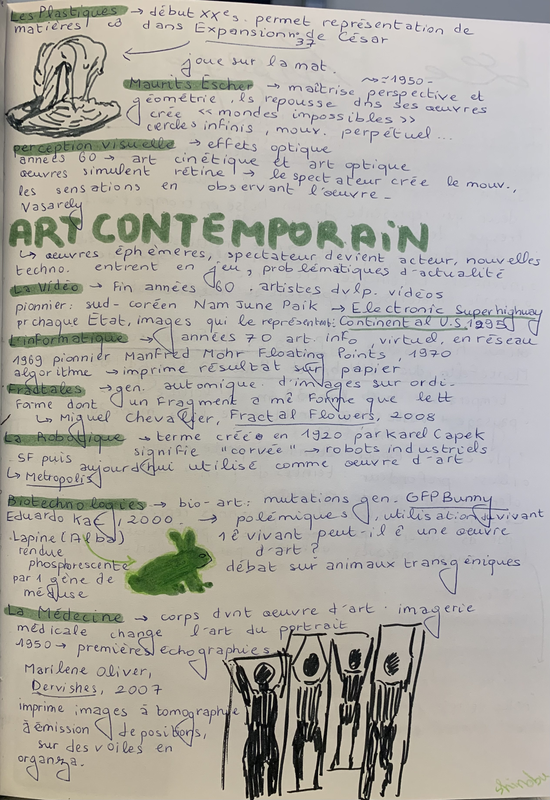 Les Plastiques → début XXe s. permet représentation de
matières et dans Expansion n°37 de César
joue sur la mat.
Maurits Escher → maîtrise perspective et ~ 1950 -
géométrie, ls repousse dns ses œuvres
crée << mondes impossibles >>
cercles infinis, mouv. perpétuel...
perception visuelle → effets optique
années 60 → art cinétique et art optique
œuvres simulent rétine → le spectateur crée le mouv.,
les sensations en observant l'œuvre -
Vasarely
ART CONTEMPORAiN
↳ œuvres éphémères, spectateur devient acteur, nouvelles
techno. entrent en jeu, problématiques d'actualité
La Vidéo → Fin années 60. artistes dvlp. vidéos
pionnier: sud-coréen Nam June Paik → Electronic Superhighway
pr chaque État, images qui le représentent: Continental U.S, 1995
L'informatique → années 70 art. info, virtuel, en réseau
1969 pionnier Manfred Mohr Floating Points, 1970
algorithme → imprime résultat sur papier
Fractales → gen. automique d'images sur ordi.
Forme dont un Fragment a mê Forme que le tt
↳ Miguel Chevalier, Fractal Flowers, 2008
La Robotique → terme créé en 1920 par Karel Capek
signifie "corvée" → robots industriels
SF puis aujourd'hui utilisé comme œuvre d'art
↳ Metropolis
Biotechnologies → bio-art: mutations gen. GFP Bunny
Eduardo Kac, 2000. → polémiques, utilisation du vivant
Lapine (Alba) 1ê vivant peut-il ê une œuvre
rendue d'art ?
phosphorescente débat sur animaux transgéniques
par 1 gène de
méduse
La Médecine → corps dvnt œuvre d'art. imagerie
médicale change l'art du portrait
1950 → premières échographies
Marilène Oliver,
Dervishes, 2007
imprime images à tomographie
à émission de positons,
sur des voiles en
organza.